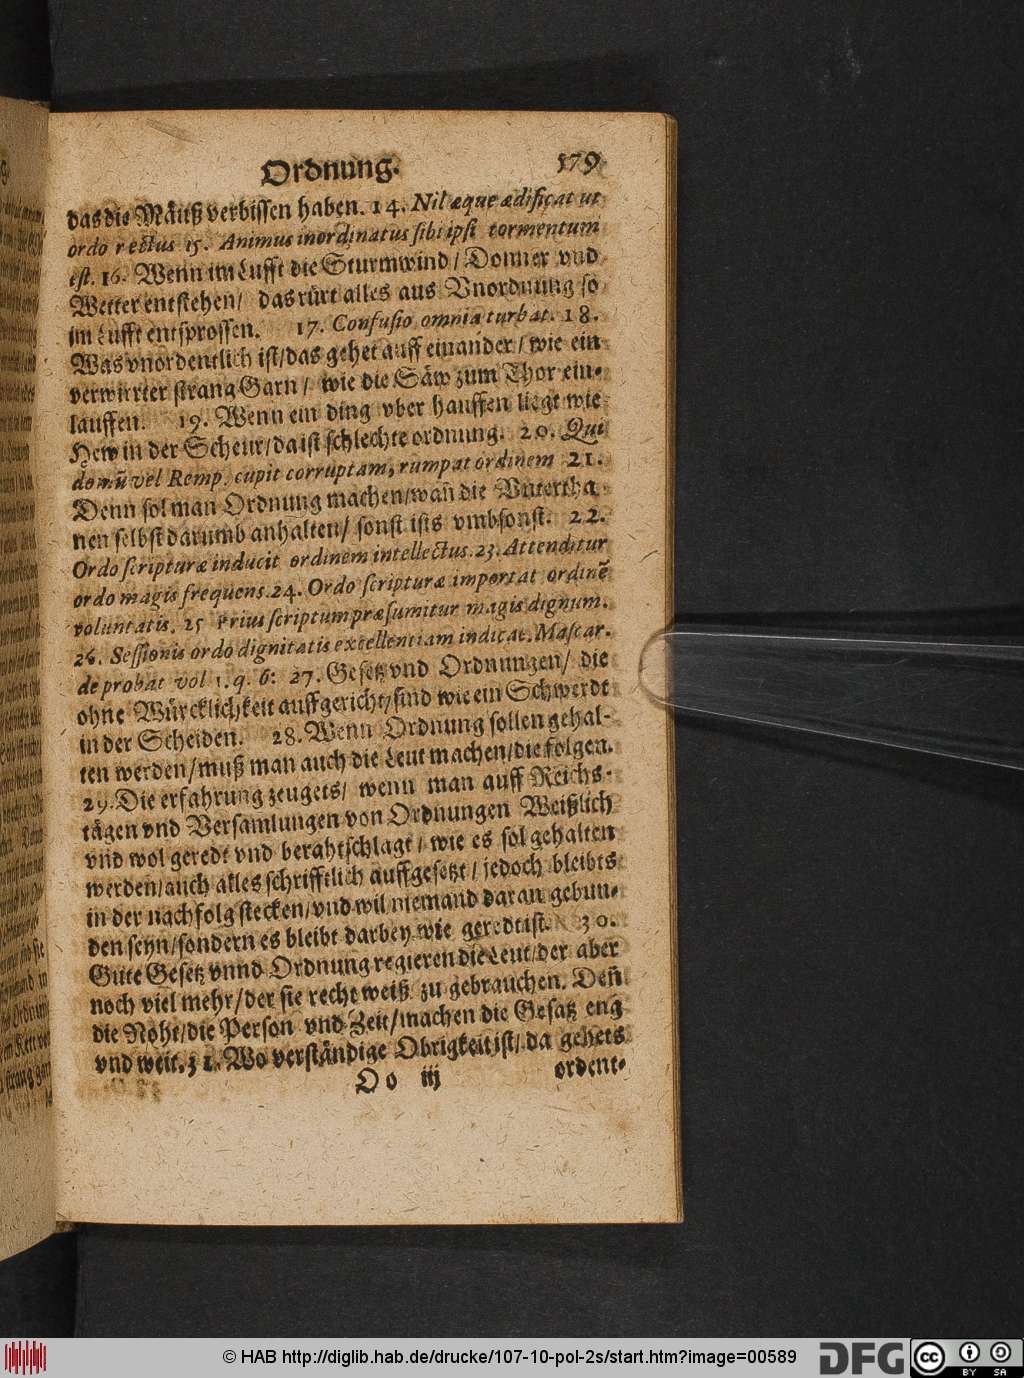 Ordnung. 179
das die Mäuß verbissen haben. 14. Nil æque ædificat ut
ordo rectus 15. Animus inordinatus sibi ipsi tormentum
est. 16. Wenn im Lufft die Sturmwind / Donner vnd
Wetter entstehen / das rürt alles aus Vnordnung so
im Lufft entsprossen. 17. Confusio omnia turbat. 18.
Was vnordentlich ist/das gehet auff einander / wie ein
verwirrter strang Garn / wie die Säw zum Thor ein-
lauffen. 19. Wenn ein ding vber hauffen liegt wie
Hew in der Scheur/da ist schlechte ordnung. 20. Qui
domū vel Remp. cupit corruptam, rumpat ordinem 21.
Denn sol man Ordnung machen/wañ die Vntertha-
nen selbst darumb anhalten / sonst ists vmbsonst. 22.
Ordo scripturæ inducit ordinem intellectus. 23. Attenditur
ordo magis frequens. 24. Ordo scripturæ importat ordinē
voluntatis. 25 Prius scriptum præsumitur magis dignum.
26. Sessionis ordo dignitatis excellentiam indicat. Mascar.
de probat vol 1. q. 6: 27. Gesetz vnd Ordnungen / die
ohne Würcklichkeit auffgericht/sind wie ein Schwerdt
in der Scheiden. 28. Wenn Ordnung sollen gehal-
ten werden / muß man auch die Leut machen/die folgen.
29. Die erfahrung zeugets / wenn man auff Reichs-
tägen vnd Versamlungen von Ordnungen Weißlich
vnd wol geredt vnd berahtschlagt / wie es sol gehalten
werden/auch alles schrifftlich auffgesetzt / jedoch bleibts
in der nachfolg stecken/vnd wil niemand daran gebun-
den seyn/sondern es bleibt darbey wie geredt ist. 30.
Gute Gesetz vnnd Ordnung regieren die Leut/der aber
noch viel mehr/der sie recht weiß zu gebrauchen. Deñ
die Noht/die Person vnd Zeit/machen die Gesatz eng
vnd weit. 31. Wo verständige Obrigkeit ist/ da gehets
Oo iij ordent-
© HAB http://diglib.hab.de/drucke/107-10-pol-2s/start.htm?image=00589 DFG cc BY SA